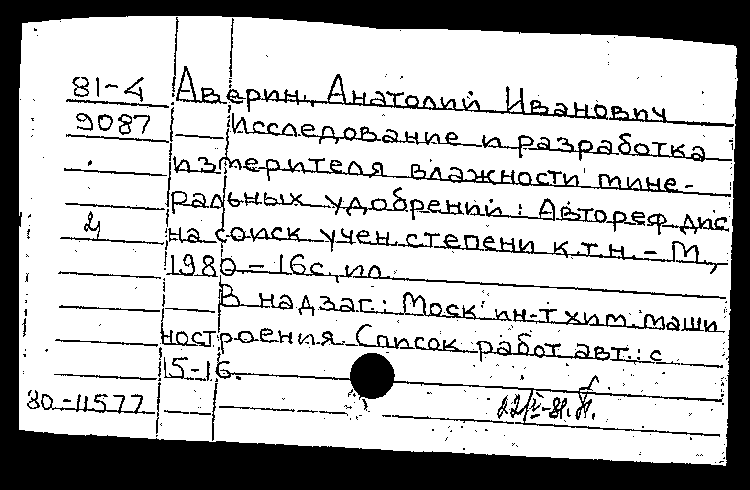 81-4 Аверин, Анатолий Иванович
9087 Исследование и разработка
измерителя влажности мине-
ральных удобрений: Автореф. дис
на соиск учен. степени к.т.н. - М.,
1980 - 16с., ил
В надзаг.: Моск ин-т хим. маши
ностроения. Список работ авт.: с
15-16.
80-11577